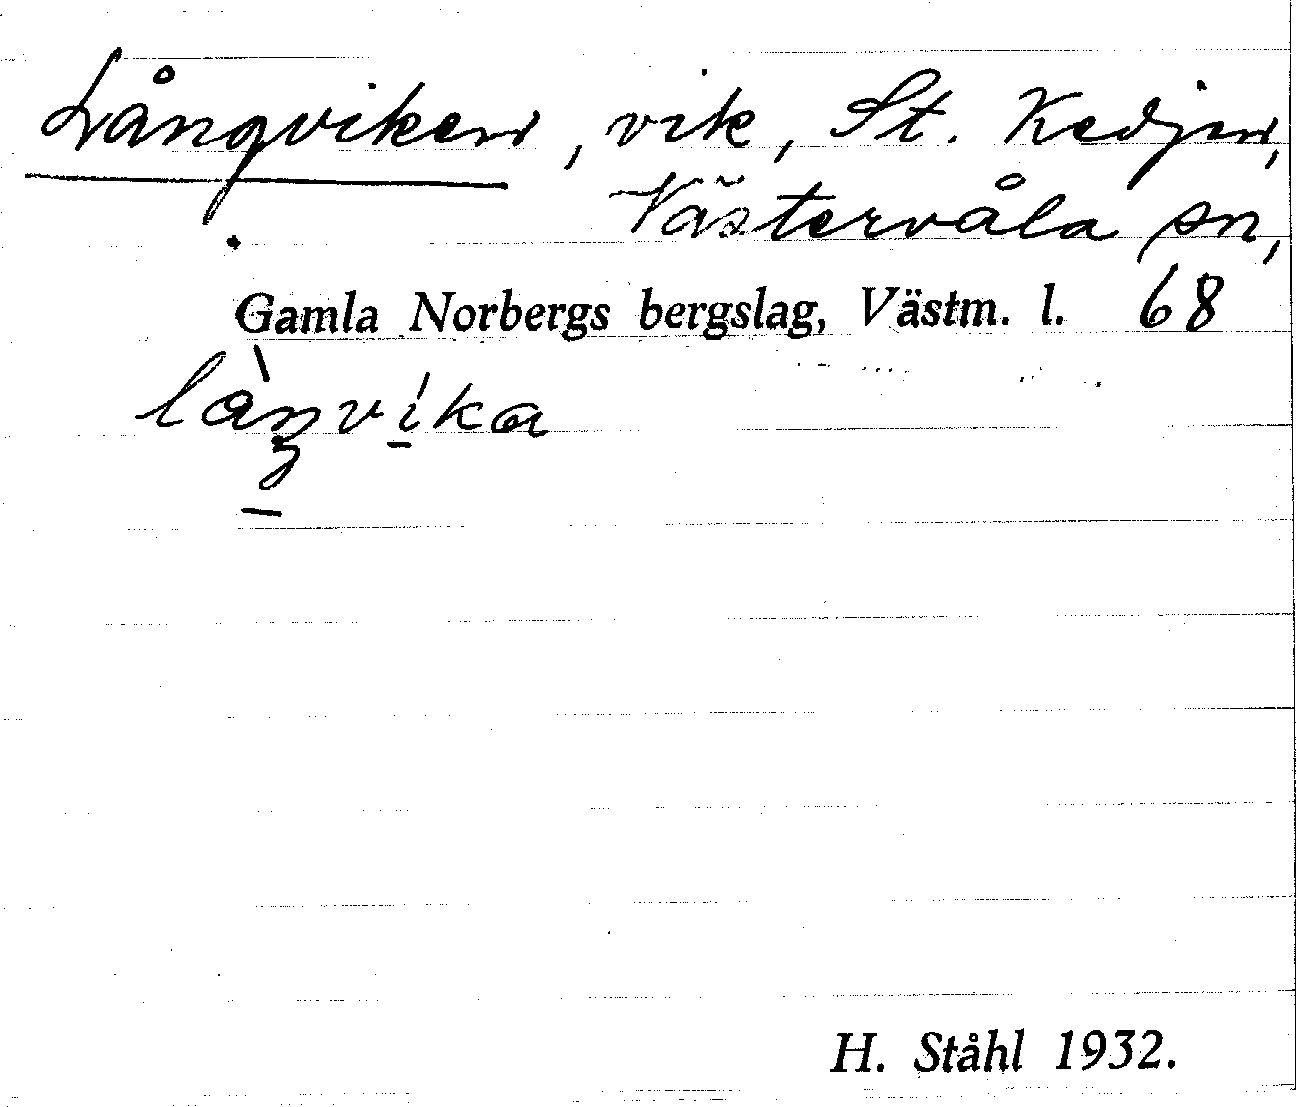 Långviken, vik, St. Kedjen,
Västervåla sn,
Gamla Norbergs bergslag, Västm. l. 68
H. Ståhl 1932.